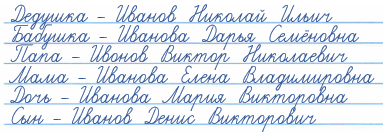 Дедушка – Иванов Николай Ильич
Бабушка – Иванова Дарья Семёновна
Папа – Ивонов Виктор Николаевич
Мама – Иванова Елена Владимировна
Дочь – Иванова Мария Викторовна
Сын – Иванов Денис Викторович